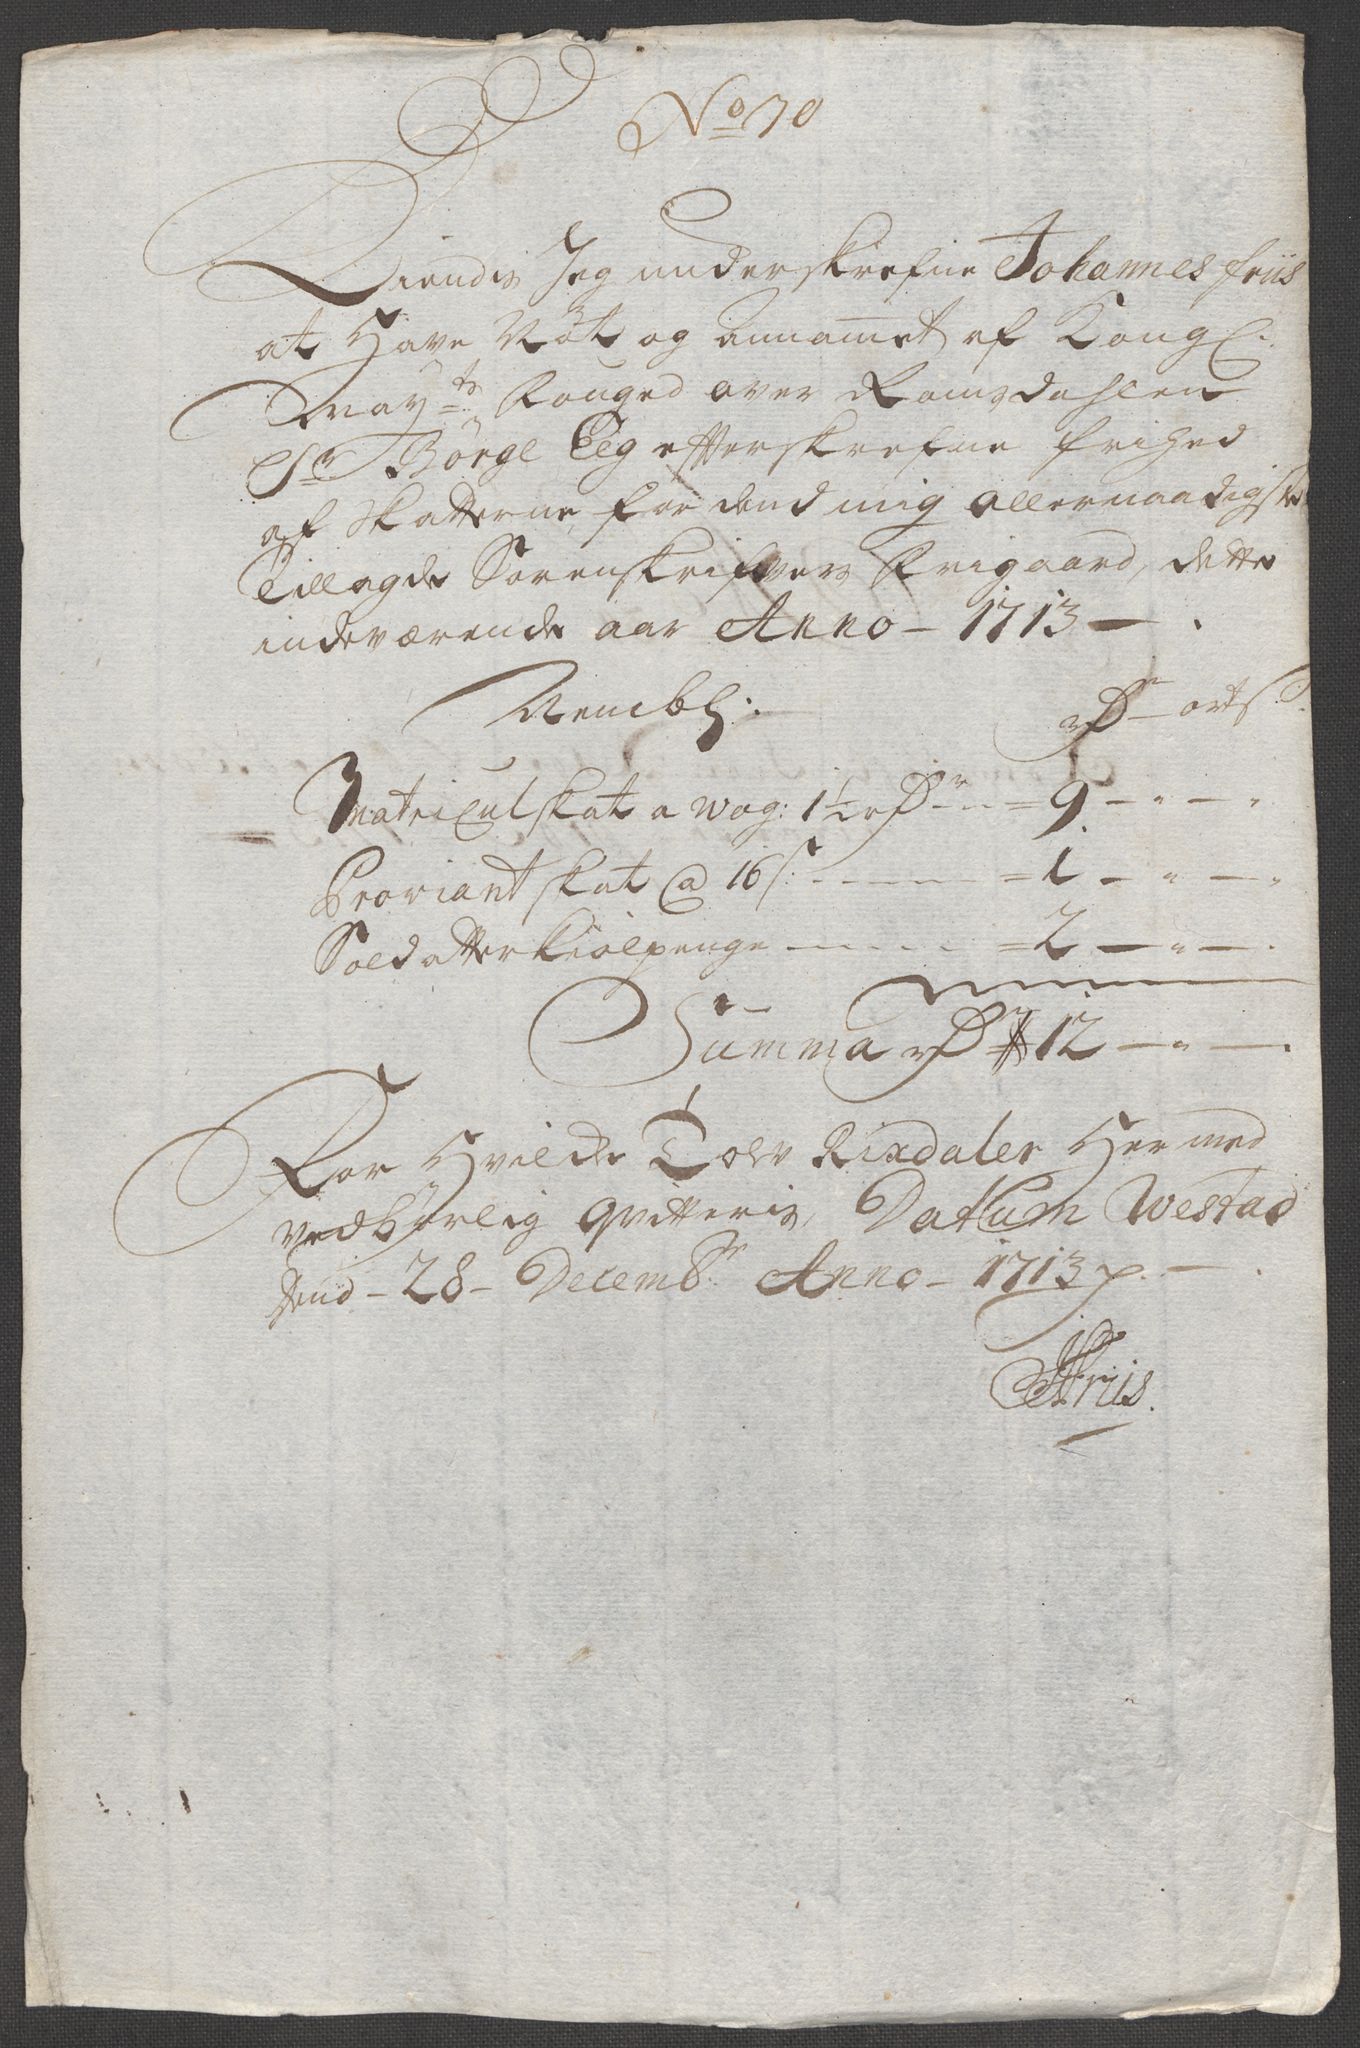 No 30
Kiendis Jeg underskrefne Johannes friis
at Have Nöt og annammet af Kongl:
Mayts Fouged over Romsdahlen
Sr Börge Eeg efterskrefne frihed
af skatterne, for dend mig allernaadigste
Tillagde Sorenskrifvers Frigaard, dette
indeværende aar Anno - 1713 -
Nembl:
rdr - ort s.
Matriculskat a wog: 1½ rdr - - = 9. - " - "
Proviant skat @ 16 s: - - - = 1 - " - "
Soldatterkiolpenge - - - = 2 - " - .
Summa rdr 12 - " - .
For Hvilche Tolv Rixdaler Hermed
vedbörlig qvitteris, Datum Westad
dend - 28 - Decembr Anno - 1713 p. -
JFriis.